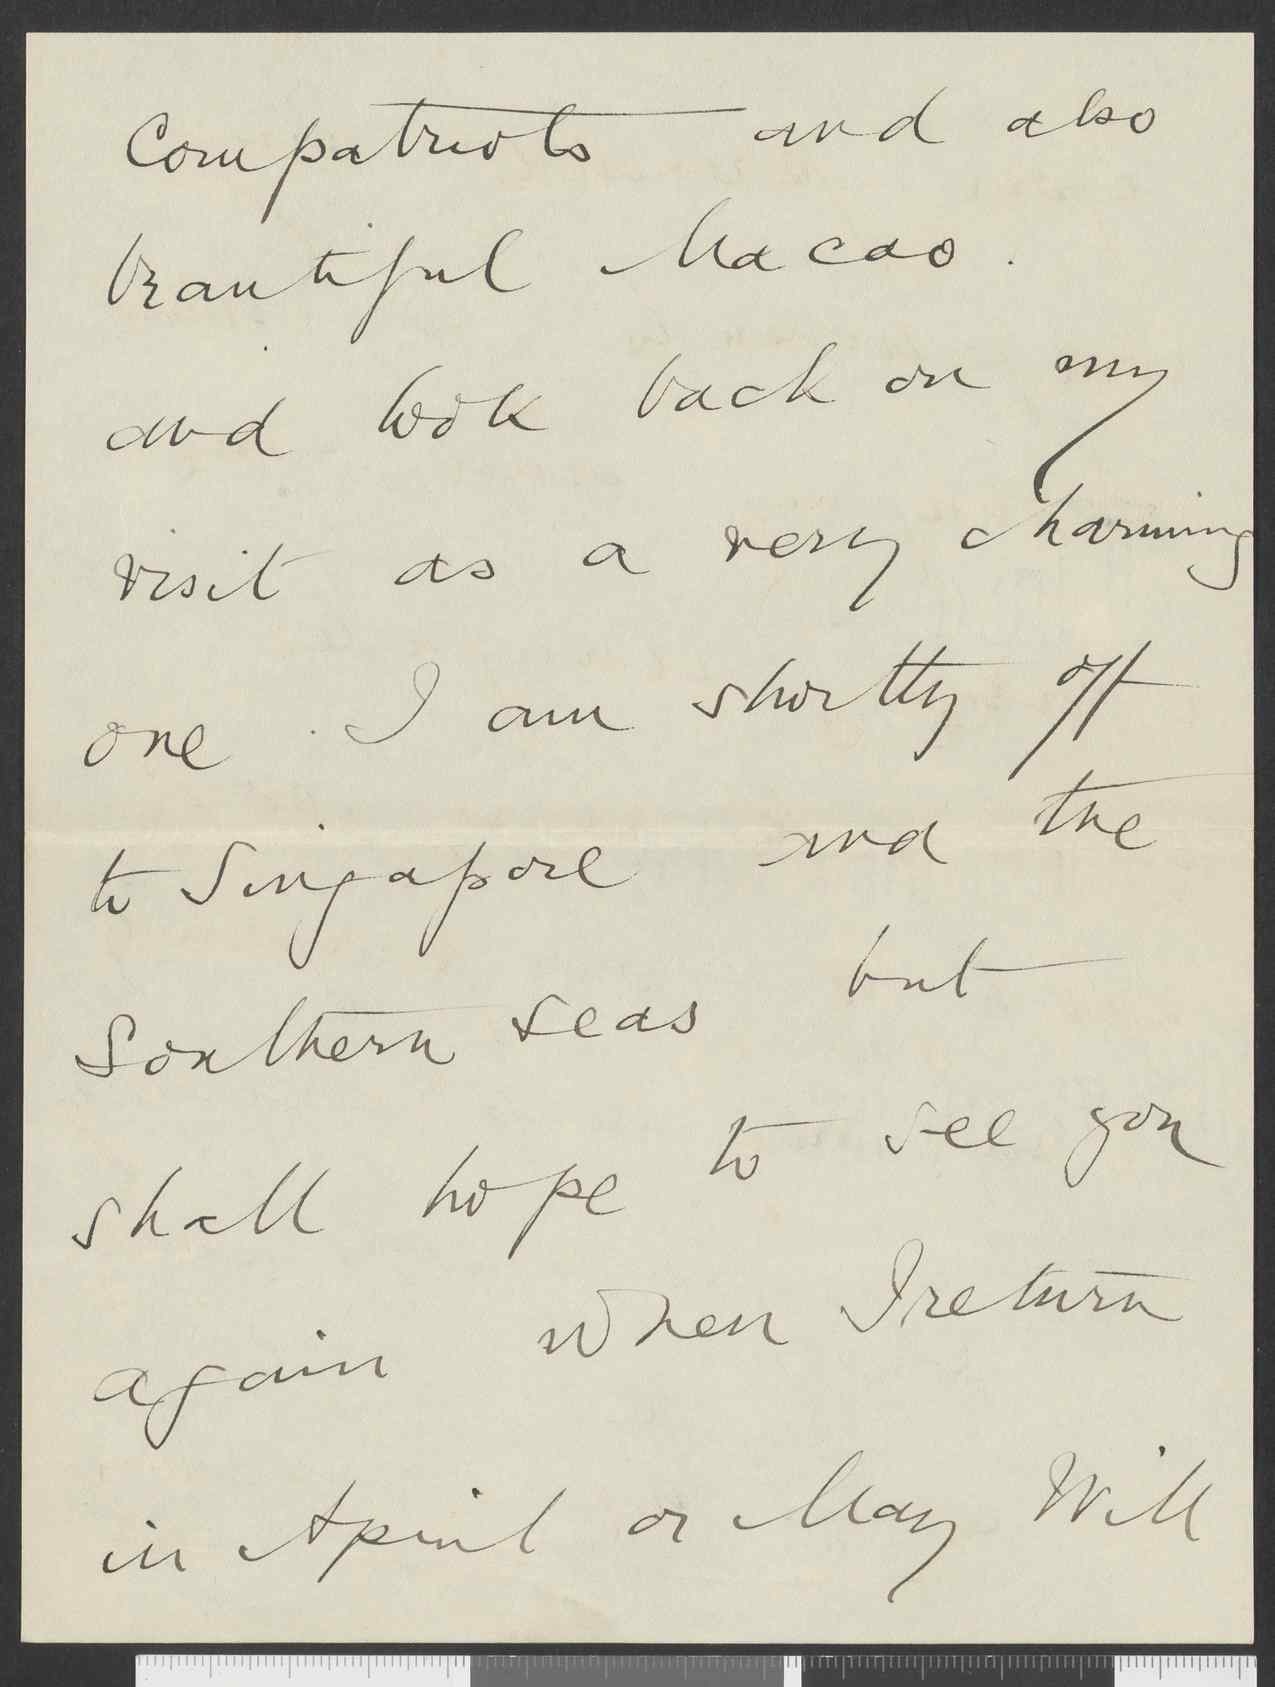 Compatriots and also
beautiful Macao.
and look back on my
visit as a very charming
one. I am shortly off
to Singapore and the
Southern seas but
shall hope to see you
again when I return
in April or May Will